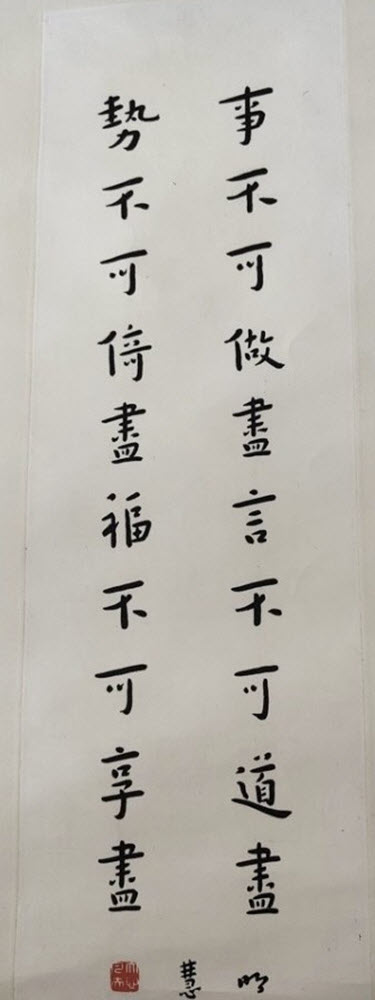 事不可做盡言不可道盡
勢不可倚盡福不可享盡
明
慧